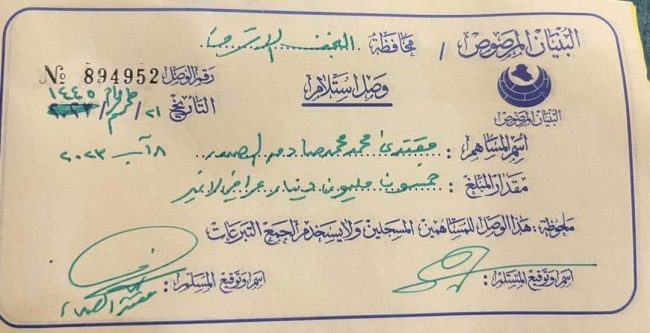 البنيان المرصوص / محافظة النجف الاشرف
رقم الوصل № 894952
وصل إستلام
البنيان المرصوص
التاريخ ٢١ / محرم / ١٤٤٥
٨ آب ٢٠٢٣
إسم المساهم : مقتدى محمد محمد صادق الصدر
مقدار المبلغ : خمسون مليون دينار عراقي لا غير
ملحوظة : هذا الوصل للمساهمين المسجلين ولا يستخدم لجمع التبرعات
إسم وتوقيع المستلم :
إسم وتوقيع المسلم :
مقتدى الصدر